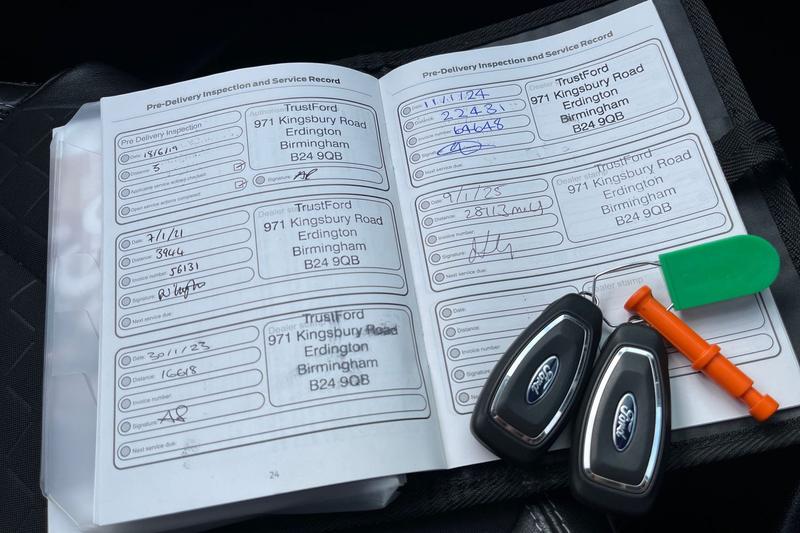 Pre-Delivery Inspection and Service Record
Pre Delivery Inspection
Date: 18/6/19
Distance: 5
Applicable service actions checked:
Open service actions completed:
TrustFord
971 Kingsbury Road
Erdington
Birmingham
B24 9QB
Signature:
Date: 7/1/21
Distance: 3944
Invoice number: 56131
Signature:
Next service due:
Dealer stamp
TrustFord
971 Kingsbury Road
Erdington
Birmingham
B24 9QB
Date: 30/1/23
Distance: 16618
Invoice number:
Signature:
Next service due:
Dealer stamp
TrustFord
971 Kingsbury Road
Erdington
Birmingham
B24 9QB
24
Pre-Delivery Inspection and Service Record
Date: 11/1/24
Distance: 22431
Invoice number: 64648
Signature:
Next service due:
TrustFord
971 Kingsbury Road
Erdington
Birmingham
B24 9QB
Date: 9/1/25
Distance: 28713 miles
Invoice number:
Signature:
Next service due:
Dealer stamp
TrustFord
971 Kingsbury Road
Erdington
Birmingham
B24 9QB
Date:
Distance:
Invoice number:
Signature:
Dealer stamp
Ford
Ford